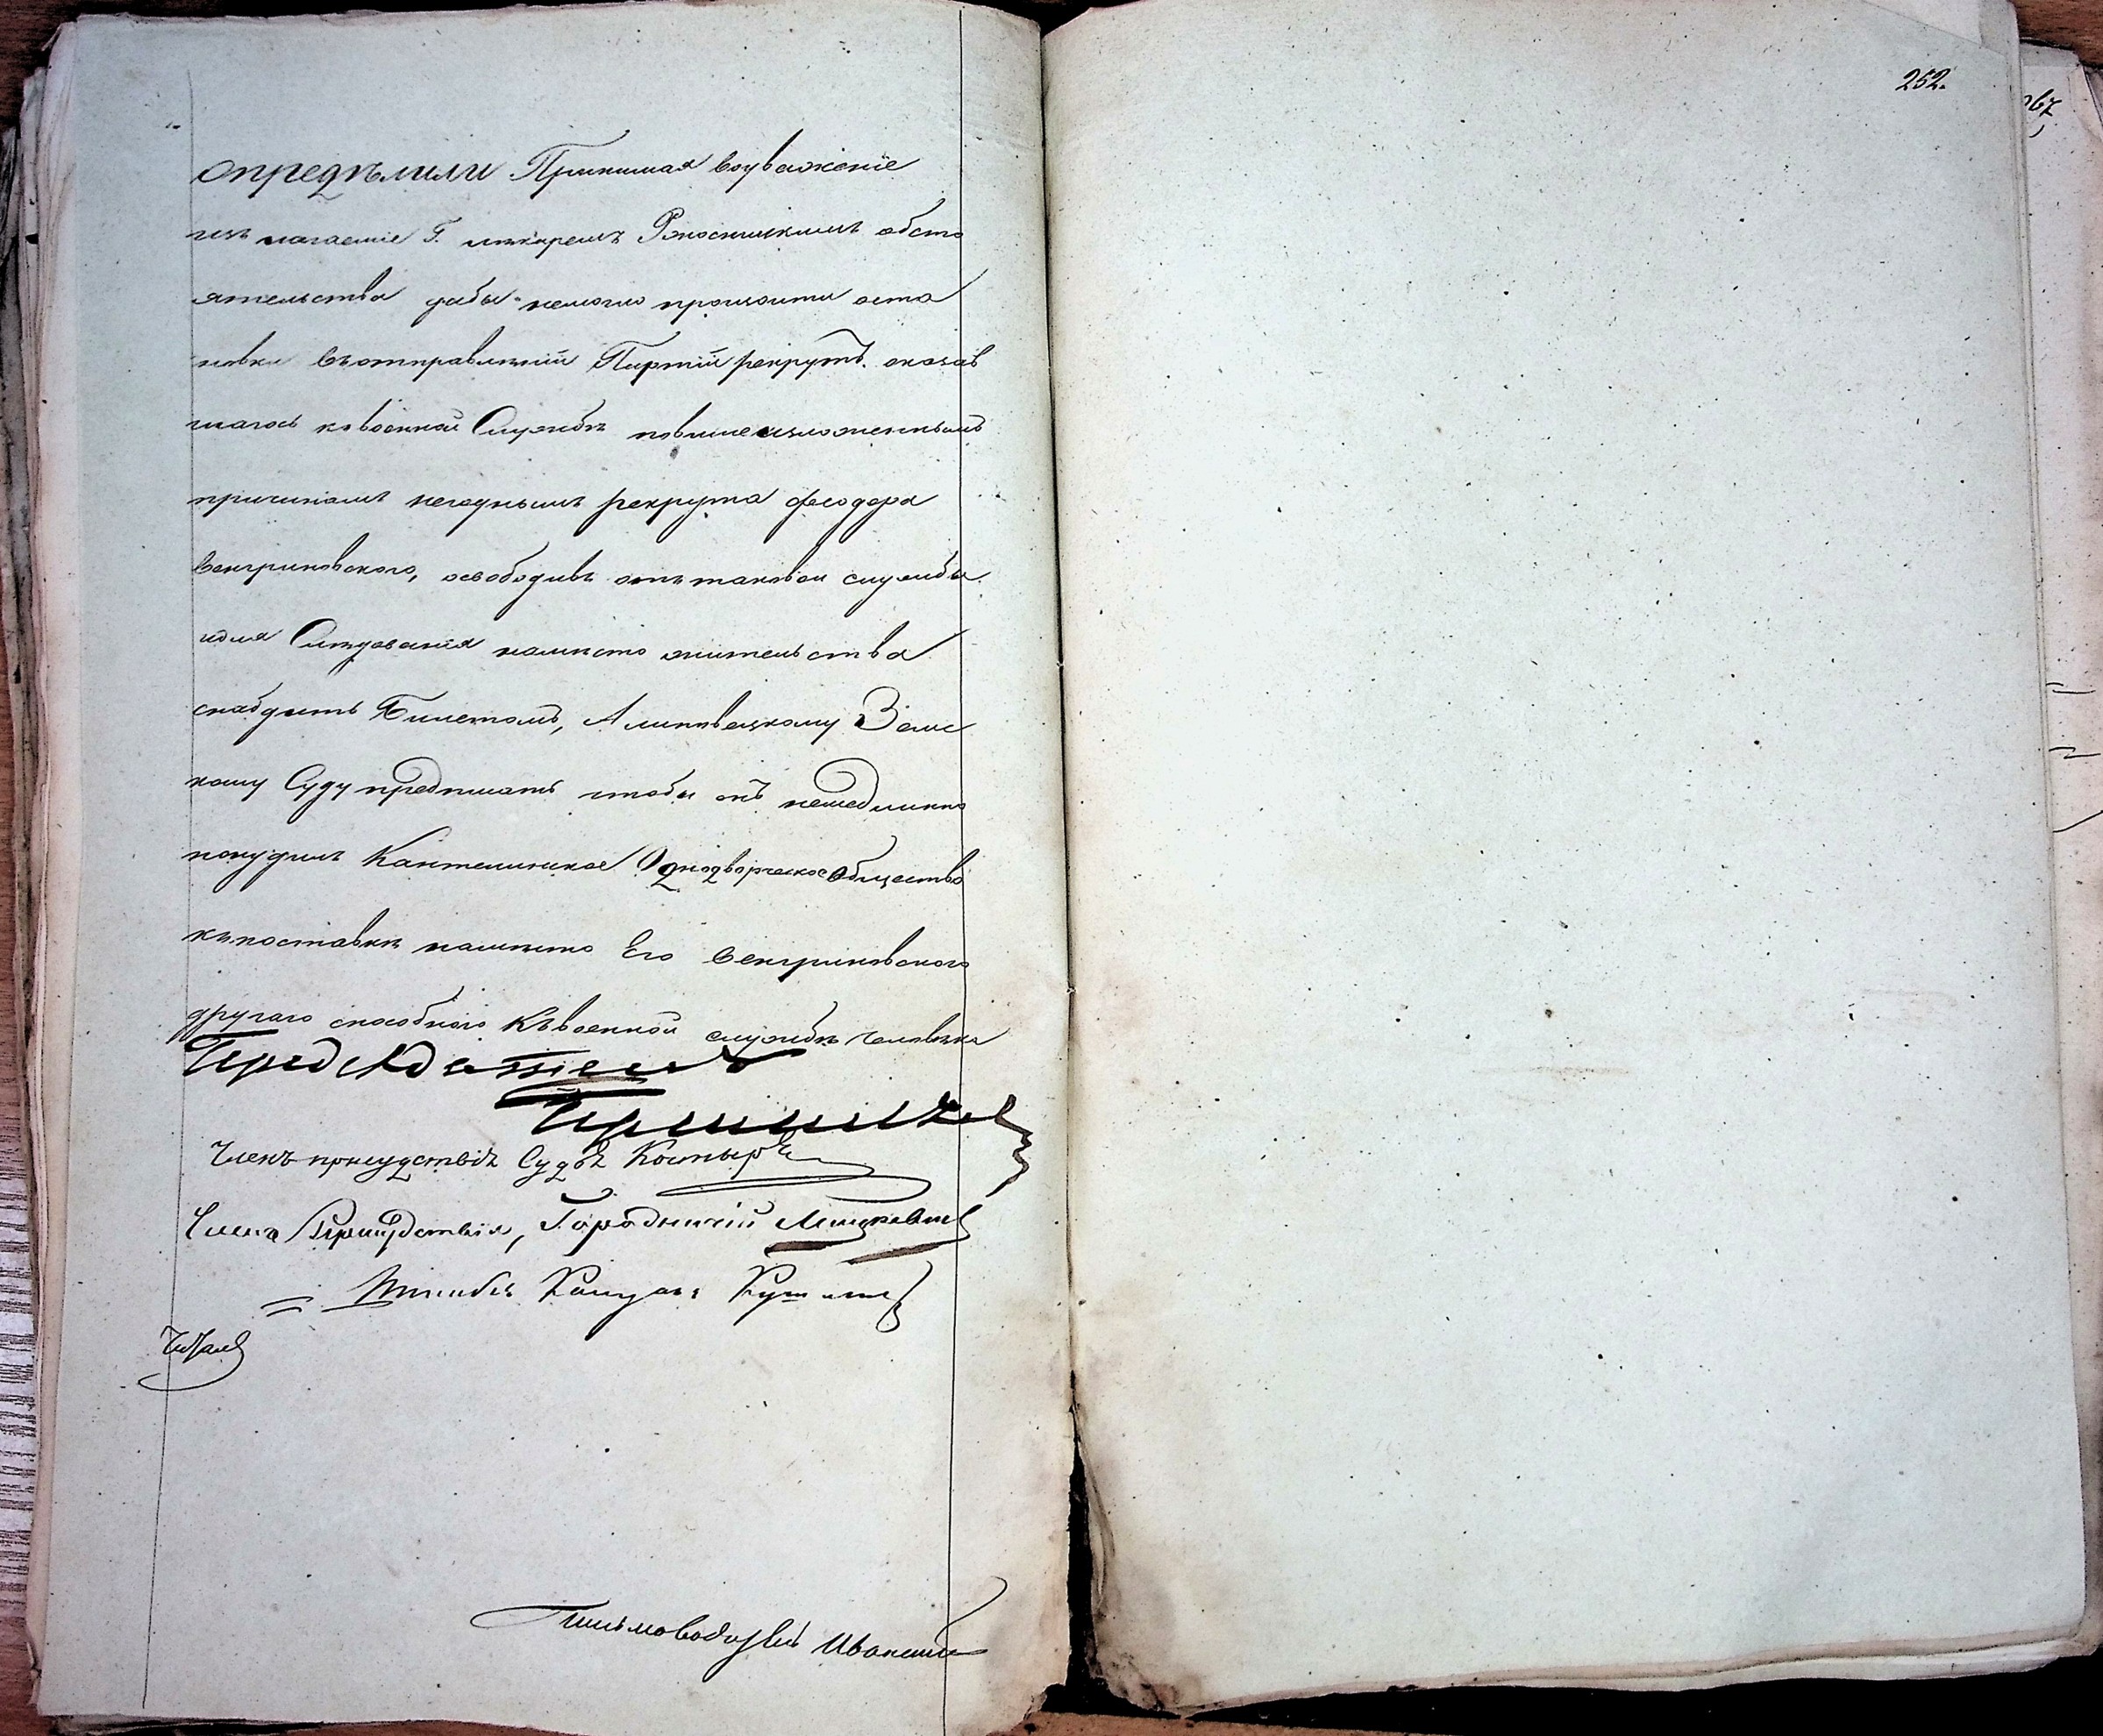 252.
опредѣлили Принимая воуваженіе
Г. лѣкаремъ обсто
ятельства дабы немогло произойти оста
новки въотправленіи Партіи рекрутъ. оказав
шагось квоенной Службѣ повышеизложеннымъ
причинамъ негоднымъ рекрута феодора
Венгриновского, освободивъ отъ таковой службы
идля Слѣдованія намѣсто жительства
снабдить Билетомъ, А Липовецкому Земс
кому Суду предписать чтобы онъ немедленно
понудилъ Кантелинское Однодворческое Общество
къпоставкѣ намѣсто Его Венгриновского
другаго способного Къвоенной службѣ человѣка
Предсѣдатель
Членъ присудствія Судья
Члена Присудствія, Городничій Мицкевич
=
Читал
Письмоводитель